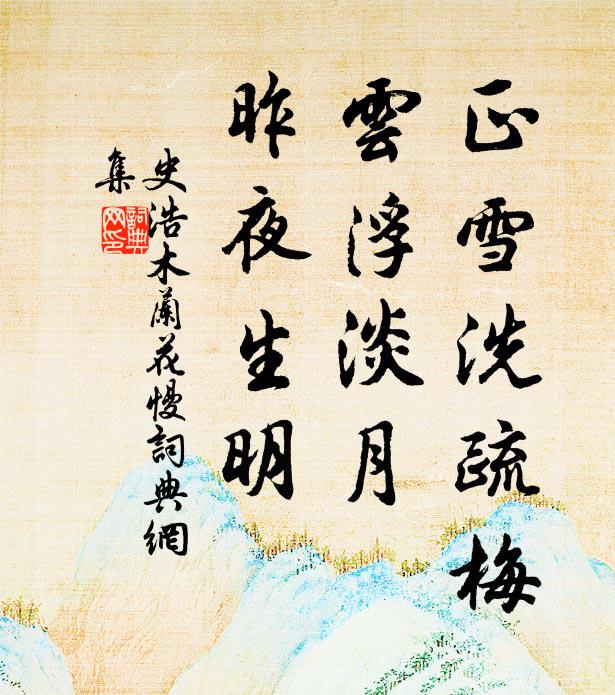 正雪洗疏梅
雲浮淡月
昨夜生明
史浩木蘭花慢詞典網
集
詞典網印